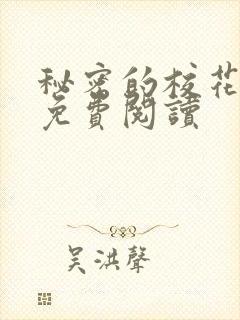 秘密的校花
免費閱讀
吳洪聲